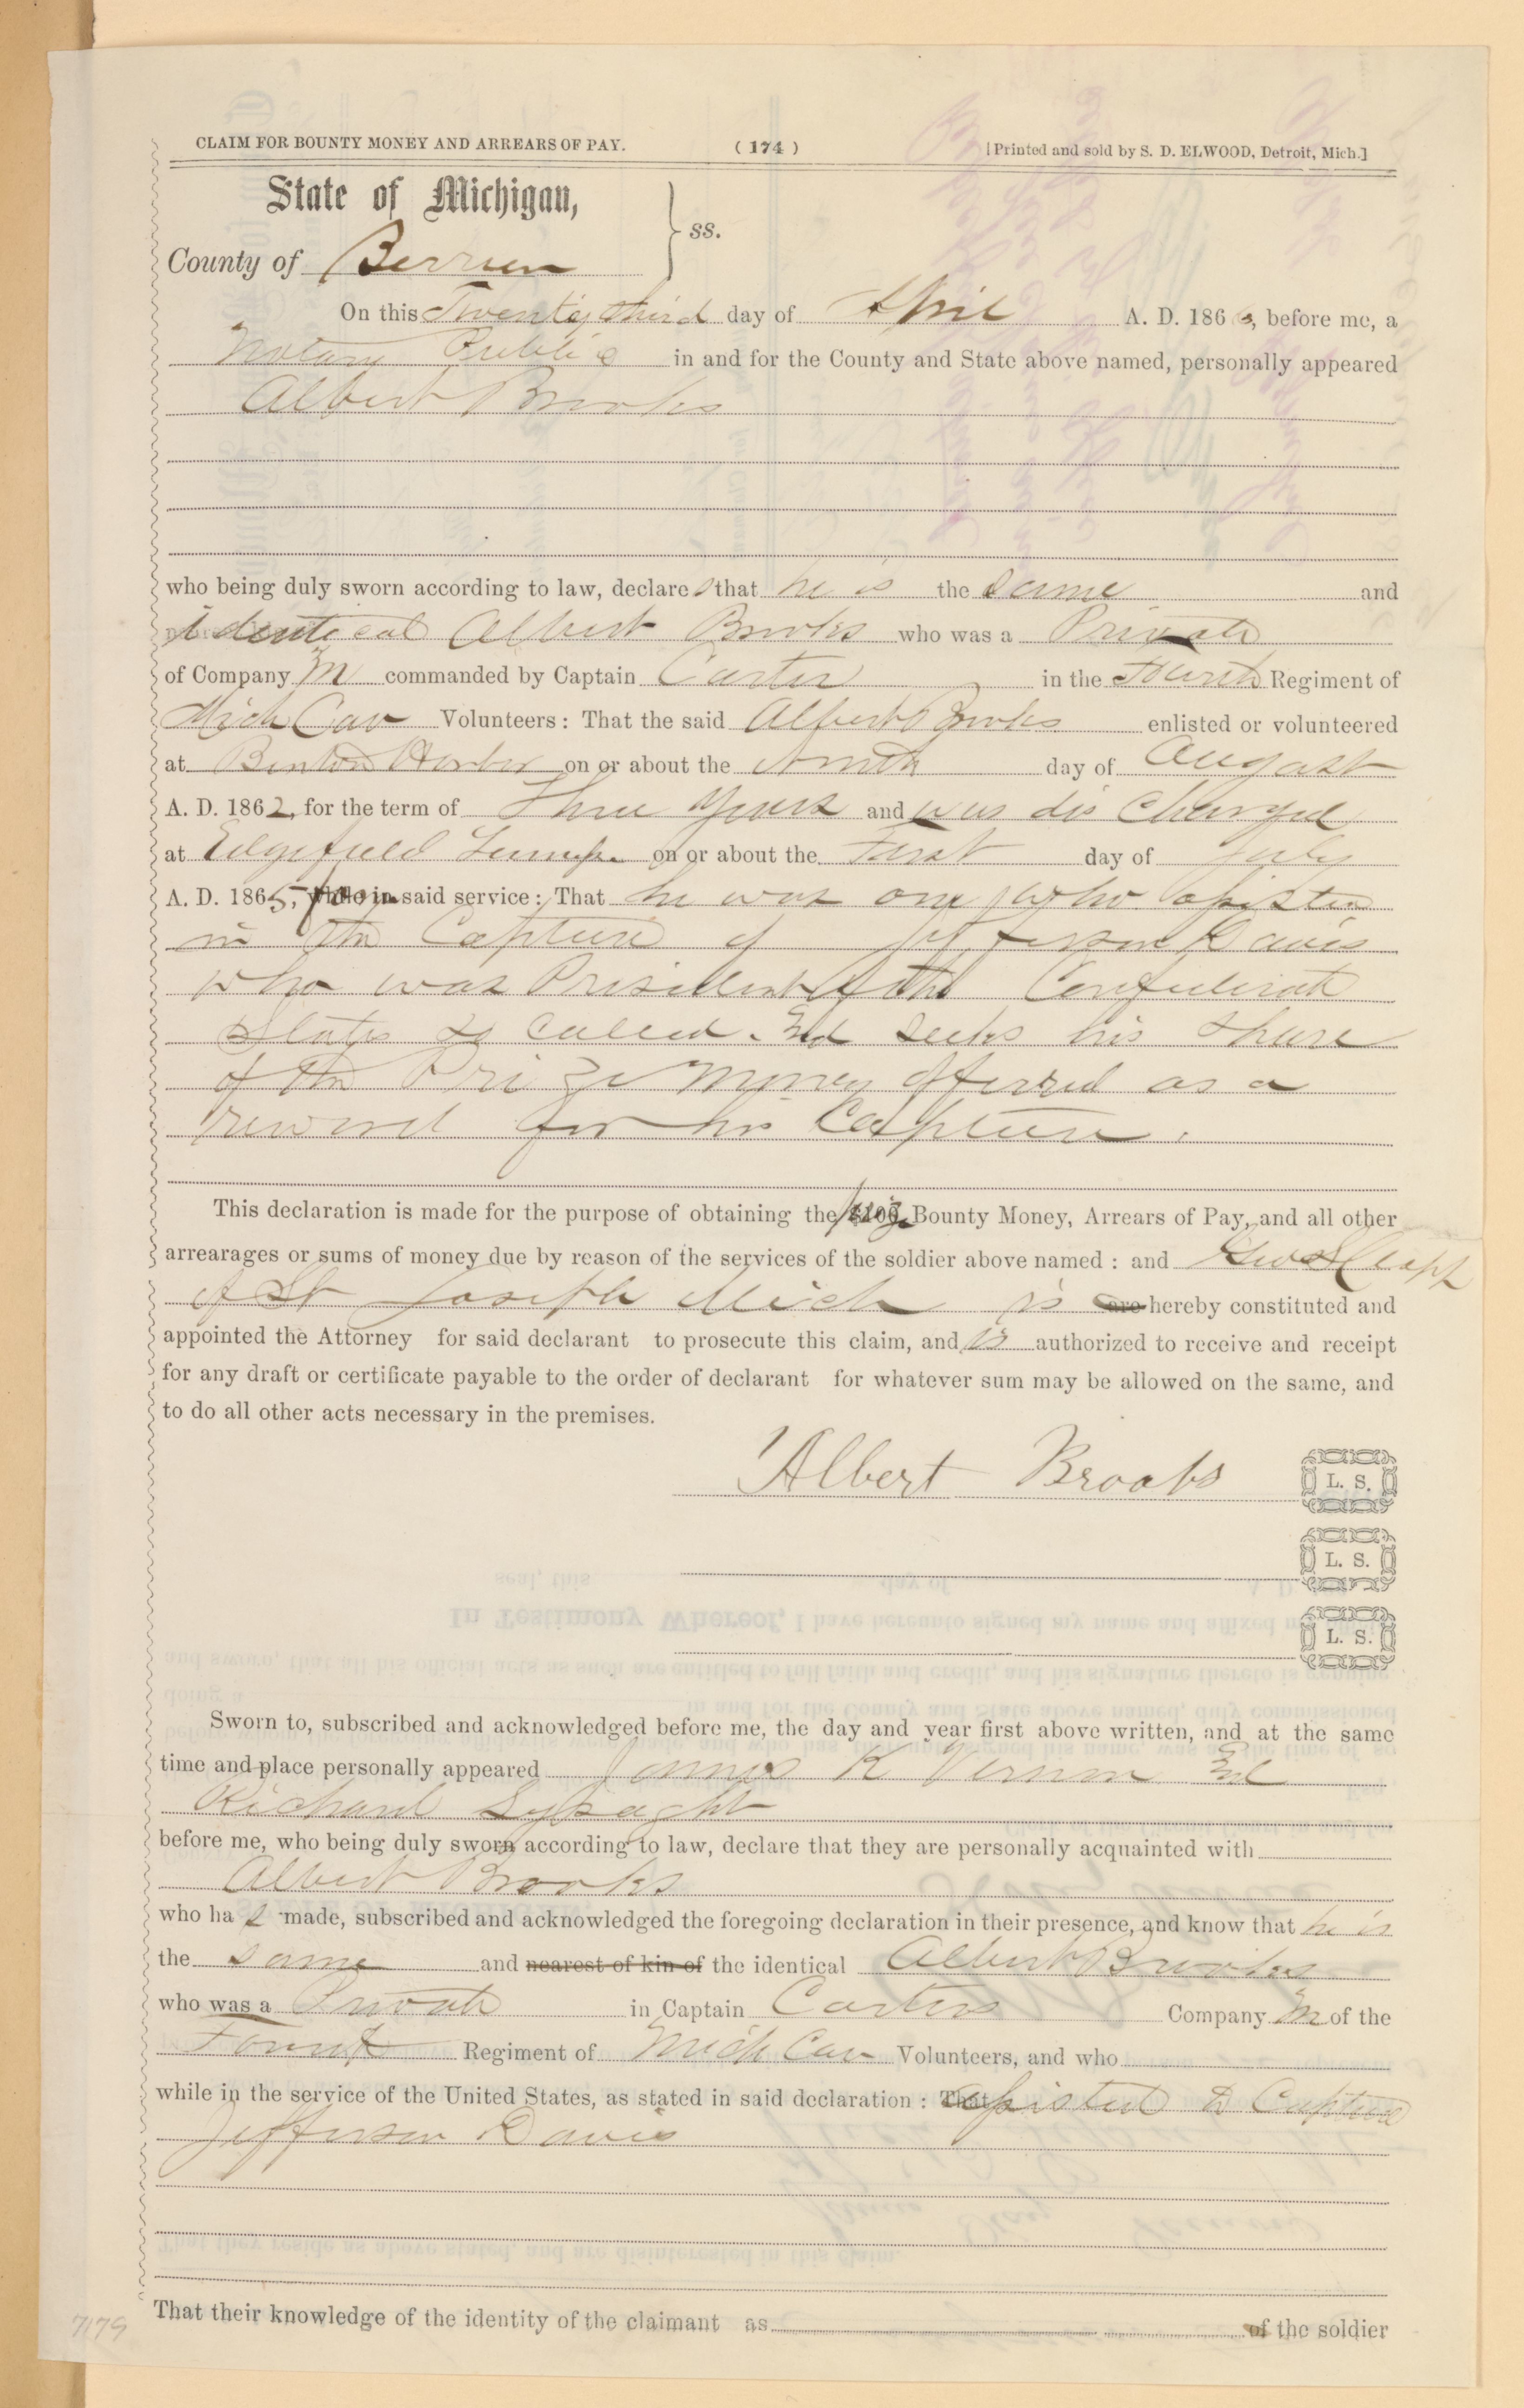 CLAIM FOR BOUNTY MONEY AND ARREARS OF PAY. (174) [Printed and sold by S. D. ELWOOD, Detroit, Mich.]
State of Michigan, } ss.
County of Berrien
On this Twenty third day of April A. D. 1866, before me, a
Notary Public in and for the County and State above named, personally appeared
Albert Brooks
who being duly sworn according to law, declares that he is the same and
identical Albert Brooks who was a Private
of Company M commanded by Captain Carter in the Fourth Regiment of
Mich Cav Volunteers: That the said Albert Brooks enlisted or volunteered
at Benton Harbor on or about the Ninth day of August
A. D. 1862, for the term of Three years and was dis charged
at Edgefield Tenn on or about the First day of July
A. D. 1865, from said service: That he was one who assisted
in the Capture of Jefferson Davis
who was President of the Confederate
States so called. And seeks his share
of the Prize money offerred as a
reward for his Capture.
This declaration is made for the purpose of obtaining the $100 Prize Bounty Money, Arrears of Pay, and all other
arrearages or sums of money due by reason of the services of the soldier above named: and Geo S Clapp
of St Joseph Mich is are hereby constituted and
appointed the Attorney for said declarant to prosecute this claim, and is authorized to receive and receipt
for any draft or certificate payable to the order of declarant for whatever sum may be allowed on the same, and
to do all other acts necessary in the premises.
Albert Brooks L. S.
L. S.
L. S.
Sworn to, subscribed and acknowledged before me, the day and year first above written, and at the same
time and place personally appeared James K Vernon And
Richard Lysaght
before me, who being duly sworn according to law, declare that they are personally acquainted with
Albert Brooks
who has made, subscribed and acknowledged the foregoing declaration in their presence, and know that he is
the same and nearest of kin of the identical Albert Brooks
who was a Private in Captain Carters Company M of the
Fourth Regiment of Mich Cav Volunteers, and who
while in the service of the United States, as stated in said declaration: That assisted to Capture
Jefferson Davis
That their knowledge of the identity of the claimant as of the soldier
7179